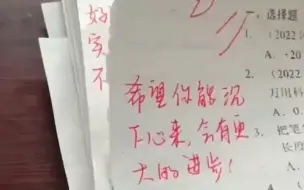 好
实
不
一、选择题
1.（2022
A.
2.（2022
万用科
A. 0.
3. 把笔
长度
A.
希望你能沉
下心来，会有更
大的进步！